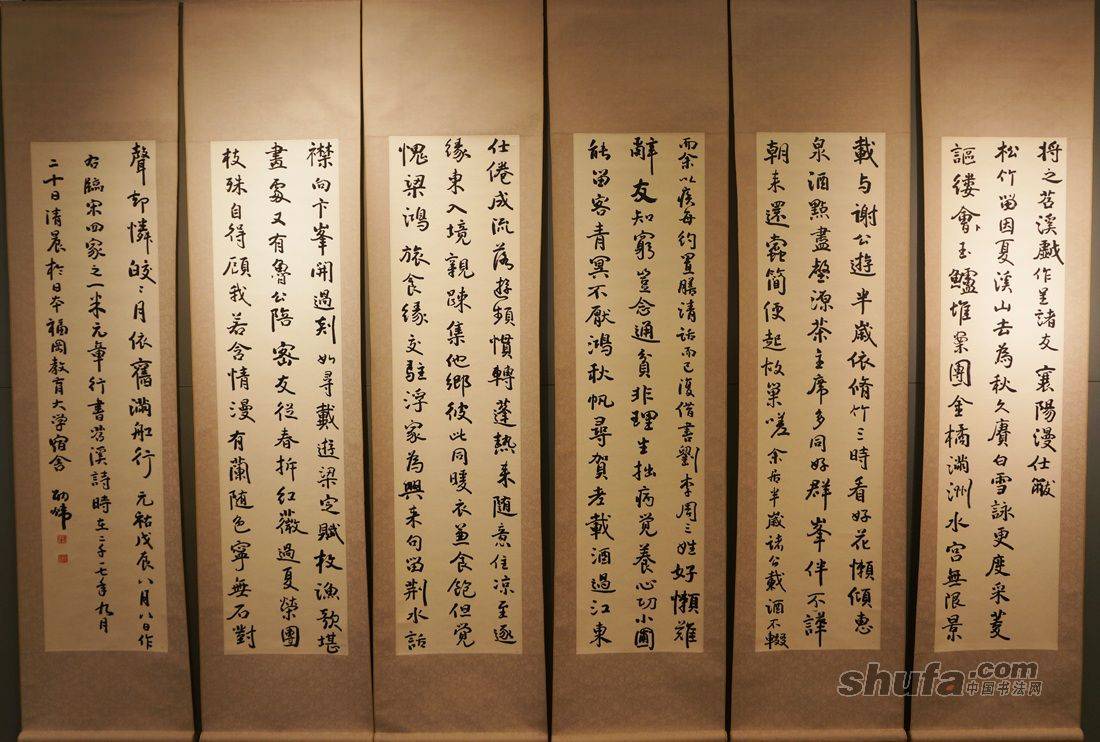 将之苕溪戯作呈諸友襄陽漫仕黻
松竹留因夏溪山去為秋久賡白雪詠更度采菱
謳縷會玉鱸堆案團金橘滿洲水宮無限景
載与謝公遊半歲依脩竹三時看好花懶傾惠
泉酒點盡壑源茶主席多同好群峯伴不譁
朝来還蠹簡便起故巢嗟余居半歲諸公載酒不輟
而余以疾每約置膳清話而已復借書劉李周三姓好懶難
辭友知窮豈念通貧非理生拙病覚養心功小圃
能留客青冥不厭鴻秋帆尋賀老載酒過江東
仕倦成流落遊頻慣轉蓬熱来随意住凉至逐
緣東入境親踈集他鄉彼此同暖衣兼食飽但覚
愧梁鴻旅食緣交駐浮家為興来句留荆水話
襟向卞峯開過剡如尋戴遊梁定賦枚漁歌堪
畫處又有魯公陪密友從春拆紅薇過夏榮團
枝殊自得顧我若含情漫有蘭随色寧無石對
聲却憐皎々月依舊滿舩行元祐戊辰八月八日作
右臨宋四家之一米元章行書苕溪詩時在二千一七年九月
二十日清晨於日本福岡教育大学宿舍
shufa.com
中国书法网